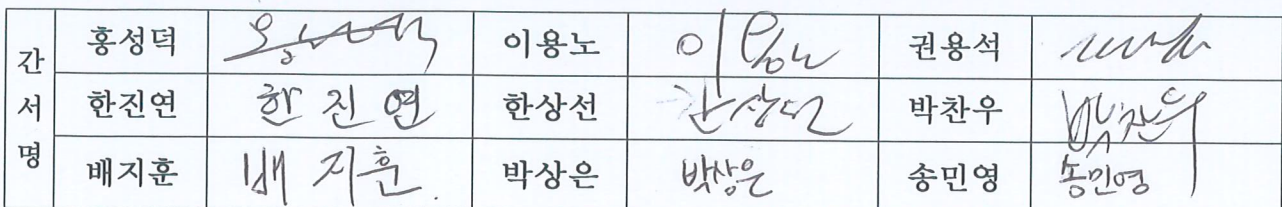 간 홍성덕 이용노 이용노 권용석
서 한진연 한진연 한상선 한상선 박찬우 박찬우
명 배지훈 배지훈 박상은 박상은 송민영 송민영